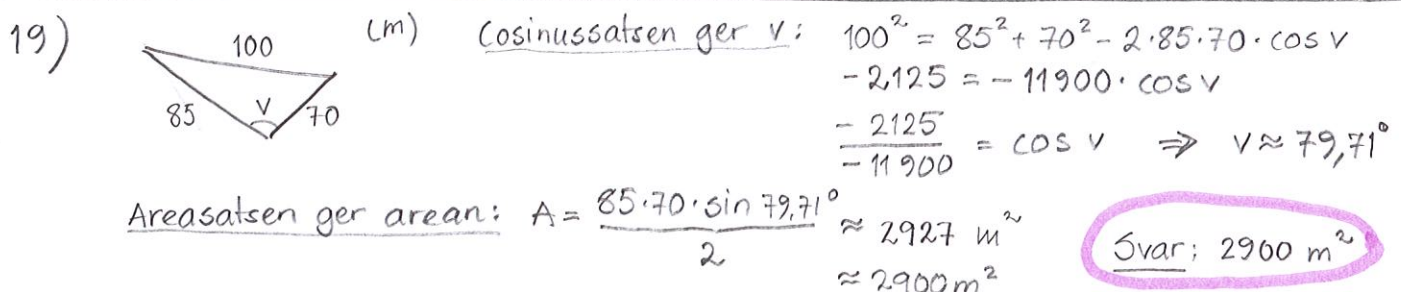 19) (m) Cosinussatsen ger v: 100² = 85² + 70² - 2·85·70·cos v
100
85 v 70
-2125 = -11900·cos v
-2125/-11900 = cos v ⇒ v ≈ 79,71°
Areasatsen ger arean: A = 85·70·sin 79,71°/2 ≈ 2927 m²
≈ 2900 m²
Svar: 2900 m²